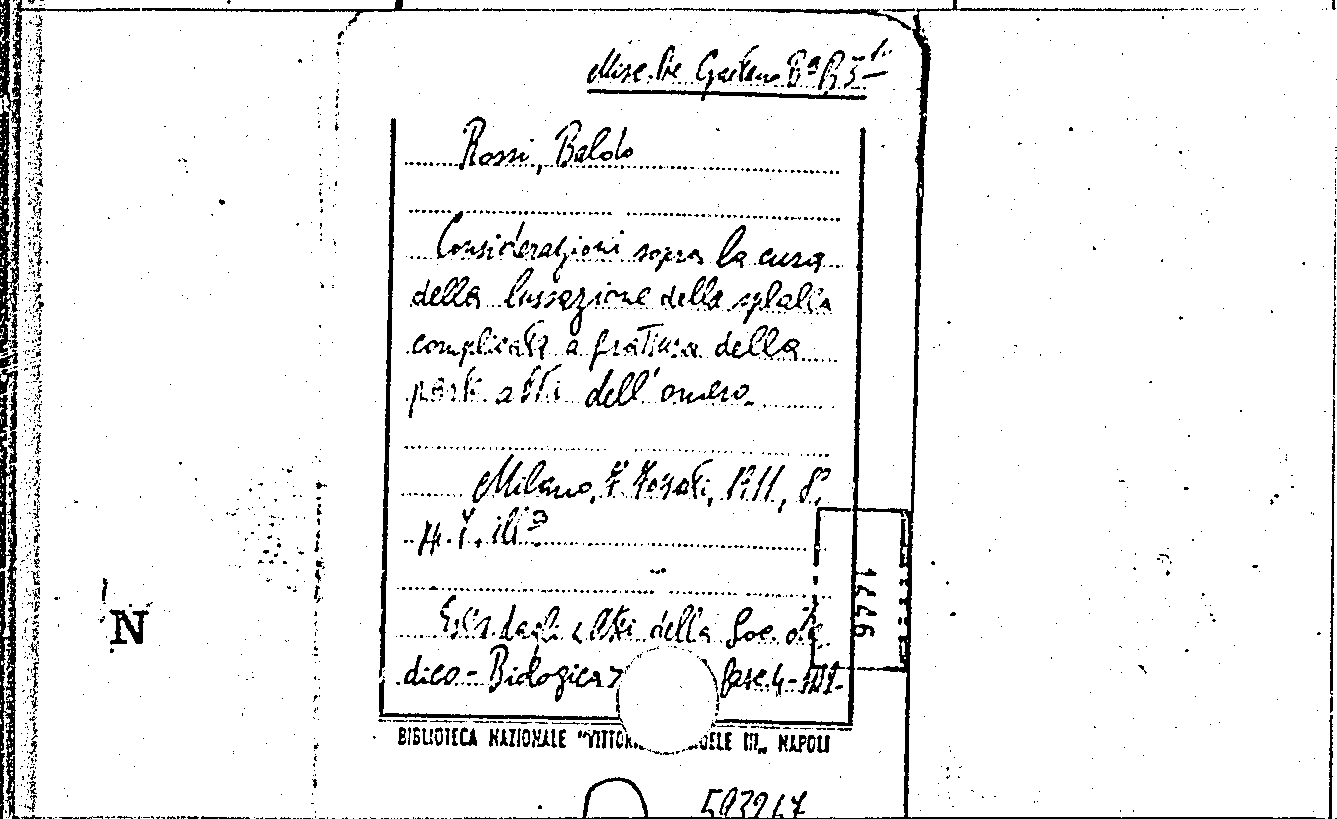 Misc. De Gaetano Bª B5
Rossi, Baldo
Considerazioni sopra la cura
della lussazione della spalla
complicata a frattura della
parte alta dell'omero.
Milano, 1911, 8°,
ill.
dagli Atti della Soc. Me
dico-Biologica fasc. 4-
BIBLIOTECA NAZIONALE "VITTOR UELE III„ NAPOLI
N
593267